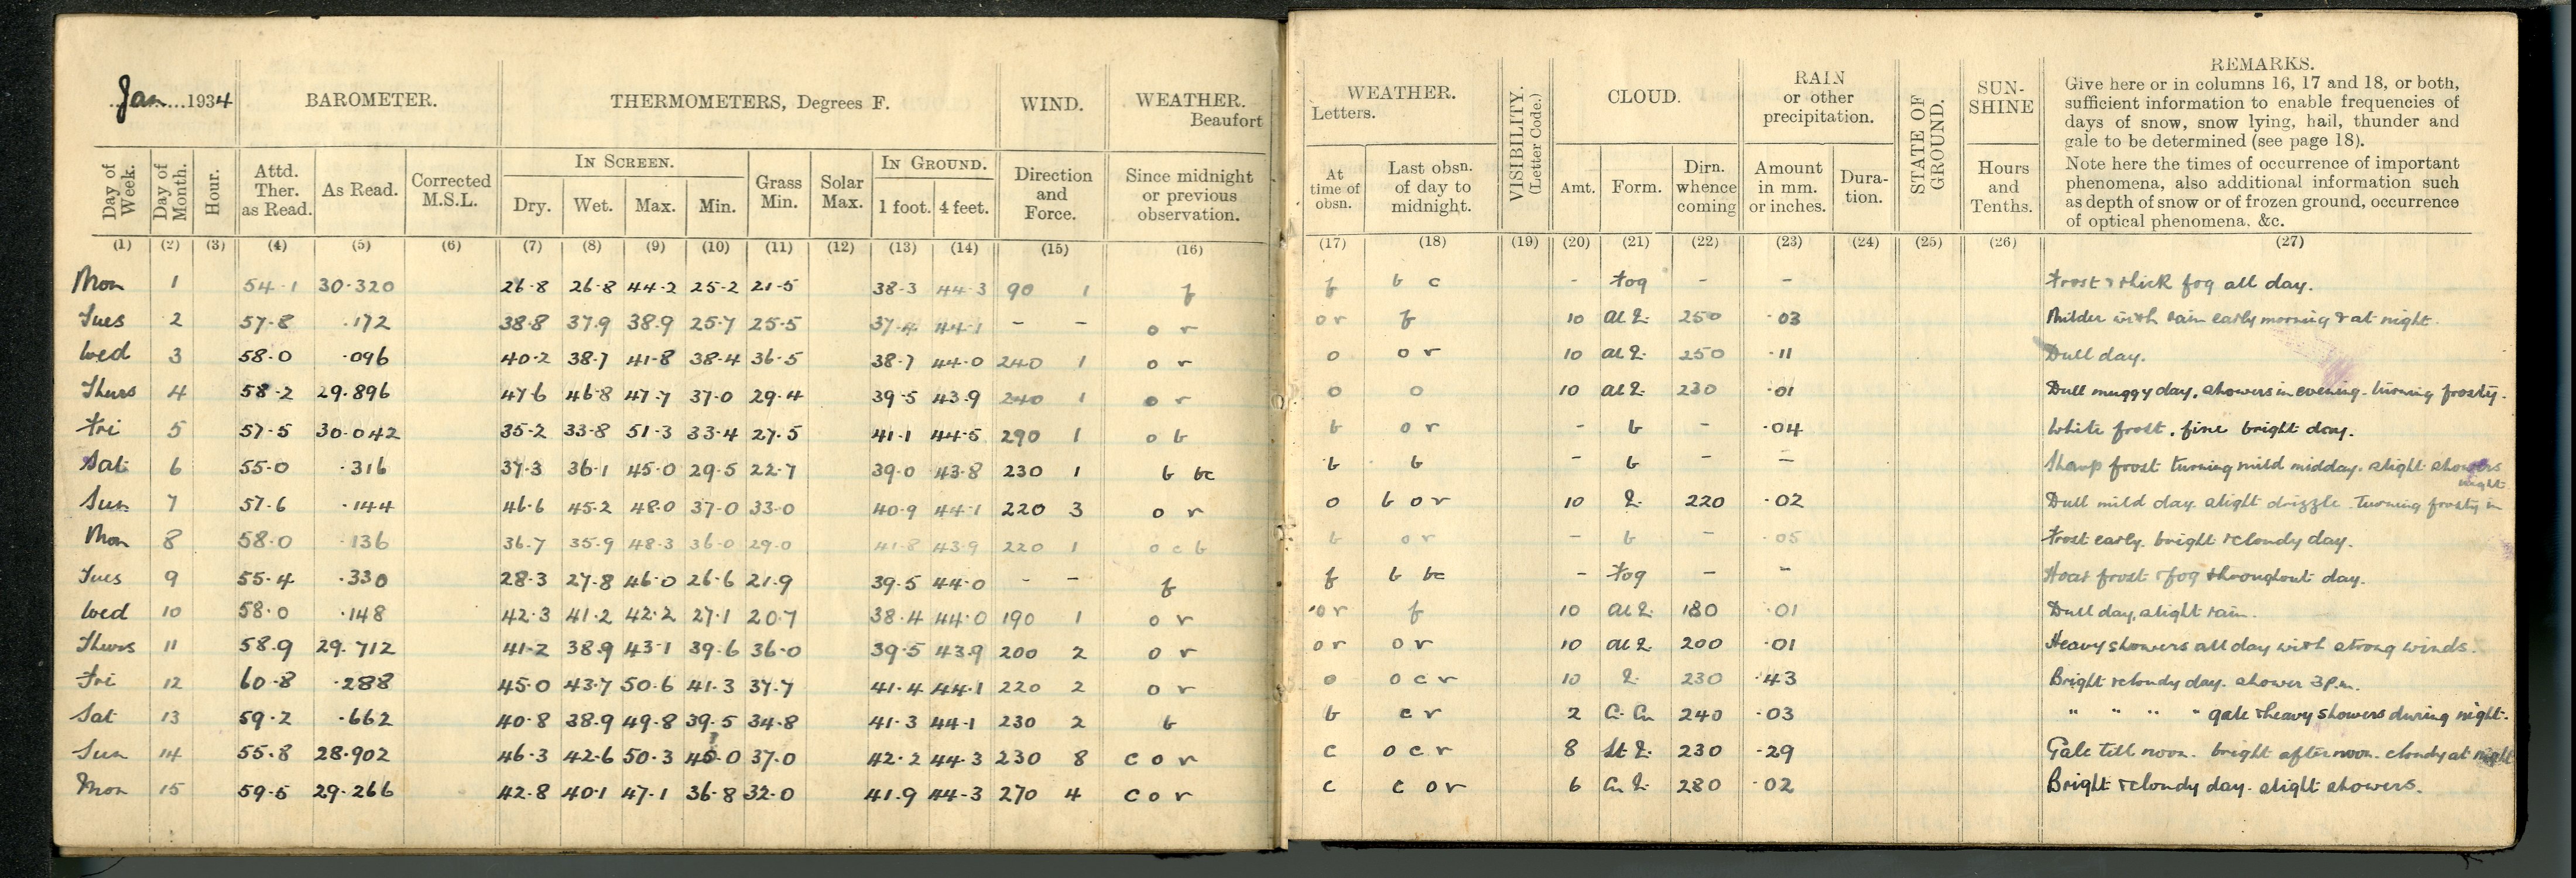 Jan 1934 BAROMETER. THERMOMETERS, Degrees F. WIND. WEATHER. Beaufort
Day of Week. Day of Month. Hour. Attd. Ther. as Read. As Read. Corrected M.S.L. IN SCREEN. Dry. Wet. Max. Min. Grass Min. Solar Max. IN GROUND. 1 foot. 4 feet. Direction and Force. Since midnight or previous observation.
(1) (2) (3) (4) (5) (6) (7) (8) (9) (10) (11) (12) (13) (14) (15) (16)
Mon 1 54.1 30.320 26.8 26.8 44.2 25.2 21.5 38.3 44.3 90 1 f
Tues 2 57.8 .172 38.8 37.9 38.9 25.7 25.5 37.4 44.1 - - o r
Wed 3 58.0 .096 40.2 38.7 41.8 38.4 36.5 38.7 44.0 240 1 o r
Thurs 4 58.2 29.896 47.6 46.8 47.7 37.0 29.4 39.5 43.9 240 1 o r
Fri 5 57.5 30.042 35.2 33.8 51.3 33.4 27.5 41.1 44.5 290 1 o b
Sat 6 55.0 .316 37.3 36.1 45.0 29.5 22.7 39.0 43.8 230 1 b bc
Sun 7 57.6 .144 46.6 45.2 48.0 37.0 33.0 40.9 44.1 220 3 o r
Mon 8 58.0 .136 36.7 35.9 48.3 36.0 29.0 41.8 43.9 220 1 o c b
Tues 9 55.4 .330 28.3 27.8 46.0 26.6 21.9 39.5 44.0 - - f
Wed 10 58.0 .148 42.3 41.2 42.2 27.1 20.7 38.4 44.0 190 1 o r
Thurs 11 58.9 29.712 41.2 38.9 43.1 39.6 36.0 39.5 43.9 200 2 o r
Fri 12 60.8 .288 45.0 43.7 50.6 41.3 37.7 41.4 44.1 220 2 o r
Sat 13 59.2 .662 40.8 38.9 49.8 39.5 34.8 41.3 44.1 230 2 b
Sun 14 55.8 28.902 46.3 42.6 50.3 40.0 37.0 42.2 44.3 230 8 c o r
Mon 15 59.5 29.266 42.8 40.1 47.1 36.8 32.0 41.9 44.3 270 4 c o r
WEATHER. Letters. VISIBILITY. (Letter Code.) CLOUD. RAIN or other precipitation. STATE OF GROUND. SUN-SHINE REMARKS.
Give here or in columns 16, 17 and 18, or both,
sufficient information to enable frequencies of
days of snow, snow lying, hail, thunder and
gale to be determined (see page 18).
Note here the times of occurrence of important
phenomena, also additional information such
as depth of snow or of frozen ground, occurrence
of optical phenomena, &c.
At time of obsn. Last obsn. of day to midnight. Amt. Form. Dirn. whence coming Amount in mm. or inches. Dura-tion. Hours and Tenths.
(17) (18) (19) (20) (21) (22) (23) (24) (25) (26) (27)
f b c - Fog - - Frost & thick fog all day.
or f 10 250 .03 Milder with rain early morning & at night.
o o r 10 250 .11 Dull day.
o o 10 230 .01 Dull muggy day, showers in evening. turning frosty.
b o r - b - .04 White frost, fine bright day.
b b - b - - Sharp frost turning mild midday. slight showers night
o b o r 10 220 .02 Dull mild day slight drizzle. Turning frosty in
b o r - b - .05 Frost early. bright & cloudy day.
f b bc - Fog - - Hoar frost & fog throughout day.
or f 10 180 .01 Dull day, slight rain.
or o r 10 200 .01 Heavy showers all day with strong winds.
o o c r 10 230 .43 Bright & cloudy day. shower 3 P.m.
b c r 2 Ci. Cu 240 .03 " " " " gale & heavy showers during night.
c o c r 8 230 .29 Gale till noon. bright afternoon. cloudy at night
c c o r 6 280 .02 Bright & cloudy day. slight showers.